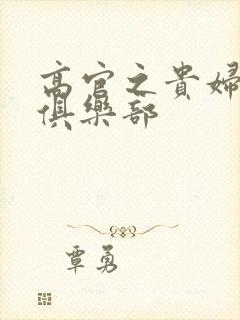 高官之貴婦
俱樂部
覃勇